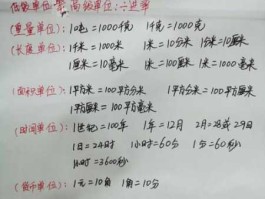 低级单位 高级单位：÷进率
(重量单位)：1吨=1000千克 1千克=1000克
(长度单位)：1千米=1000米 1米=10分米 1分米=10厘米
1厘米=10毫米 1米=100厘米 1米=1000毫米
(面积单位) 1平方米=100平方分米 1平方分米=100平方厘米
1平方厘米=100平方毫米
(时间单位)：1世纪=100年 1年=12月 2月=28或29日
1日=24时 1小时=60分 1分=60秒
1小时=3600秒
(货币单位)：1元=10角 1角=10分